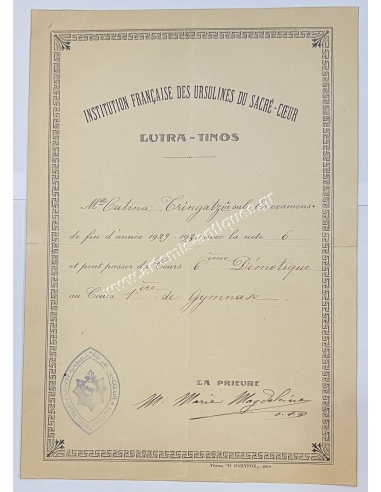 INSTITUTION FRANÇAISE DES URSULINES DU SACRÉ-CŒUR
LUTRA - TINOS
Mlle Catina Tringatzi a subi les examens
de fin d'année 1929-1930 avec la note 6
et peut passer du Cours 6ème Démotique
au Cours 1ère de Gymnase
LA PRIEURE
M. Marie Magdeleine
o.s.u